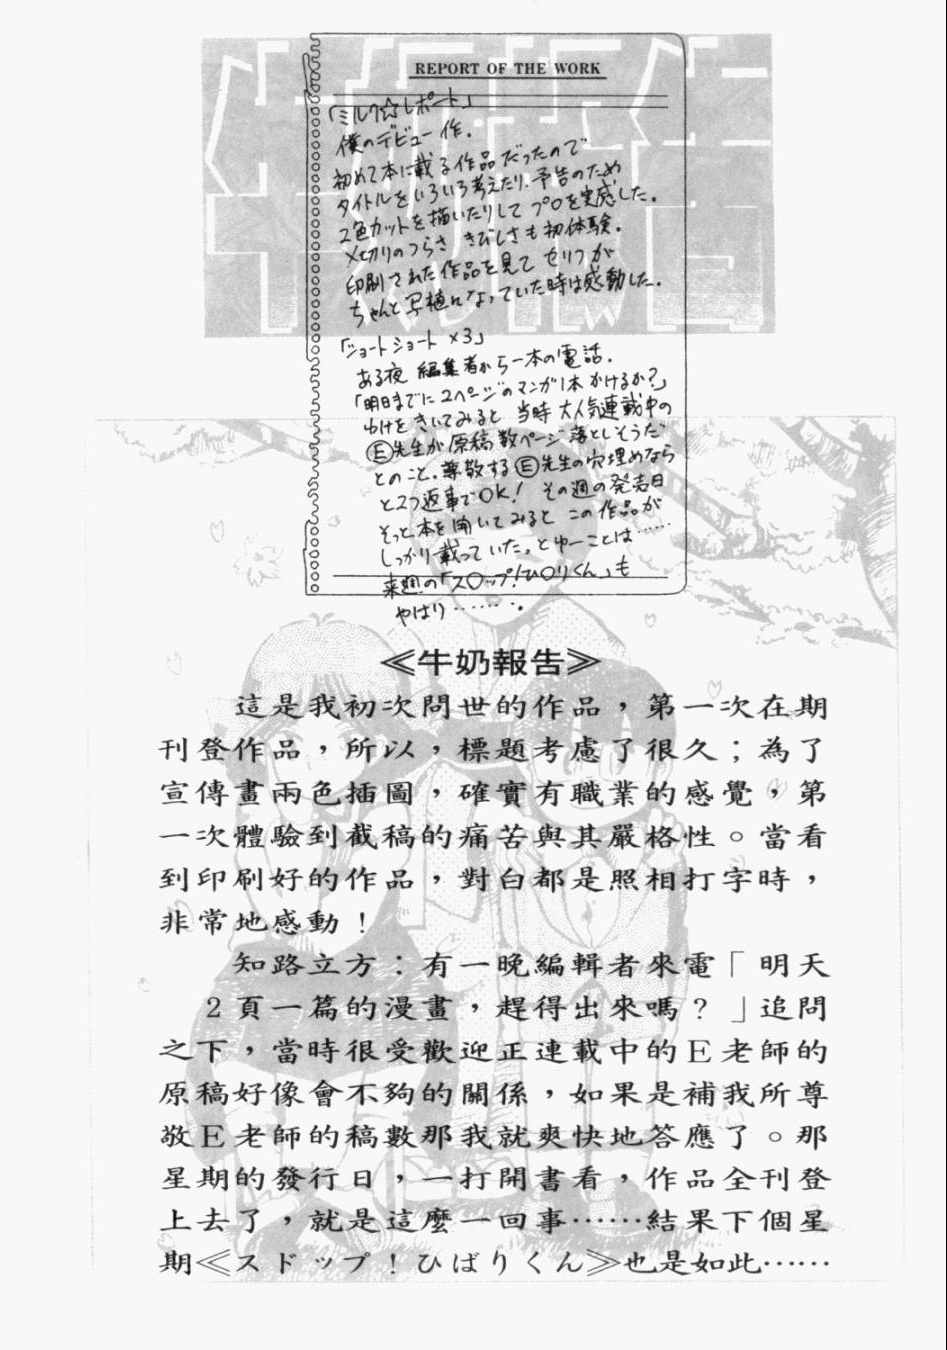 REPORT OF THE WORK
「ミルク☆レポート」
僕のデビュー作.
初めて本に載る作品だったので
タイトルをいろいろ考えたり、予告のため
2色カットを描いたりしてプロを実感した。
〆切りのつらさ きびしさも初体験.
印刷された作品を見て セリフが
ちゃんと写植になっていた時は感動した.
「ショートショート×3」
ある夜 編集者から一本の電話.
「明日までに2ページのマンガ1本かけるか?」
わけをきいてみると 当時大人気連載中の
Ⓔ先生が原稿数ページ落としそうだ
とのこと.尊敬するⒺ先生の穴埋めなら
と2つ返事でOK! その週の発売日
そっと本を開いてみると この作品が
しっかり載っていた。とゆーことは……
来週の「ス○ップ!ひ○りくん」も
やはり………。
≪牛奶報告≫
這是我初次問世的作品，第一次在期
刊登作品，所以，標題考慮了很久；為了
宣傳畫兩色插圖，確實有職業的感覺，第
一次體驗到截稿的痛苦與其嚴格性。當看
到印刷好的作品，對白都是照相打字時，
非常地感動！
知路立方：有一晚編輯者來電「明天
2頁一篇的漫畫，趕得出來嗎？」追問
之下，當時很受歡迎正連載中的E老師的
原稿好像會不夠的關係，如果是補我所尊
敬E老師的稿數那我就爽快地答應了。那
星期的發行日，一打開書看，作品全刊登
上去了，就是這麼一回事……結果下個星
期≪スドップ！ひばりくん≫也是如此……